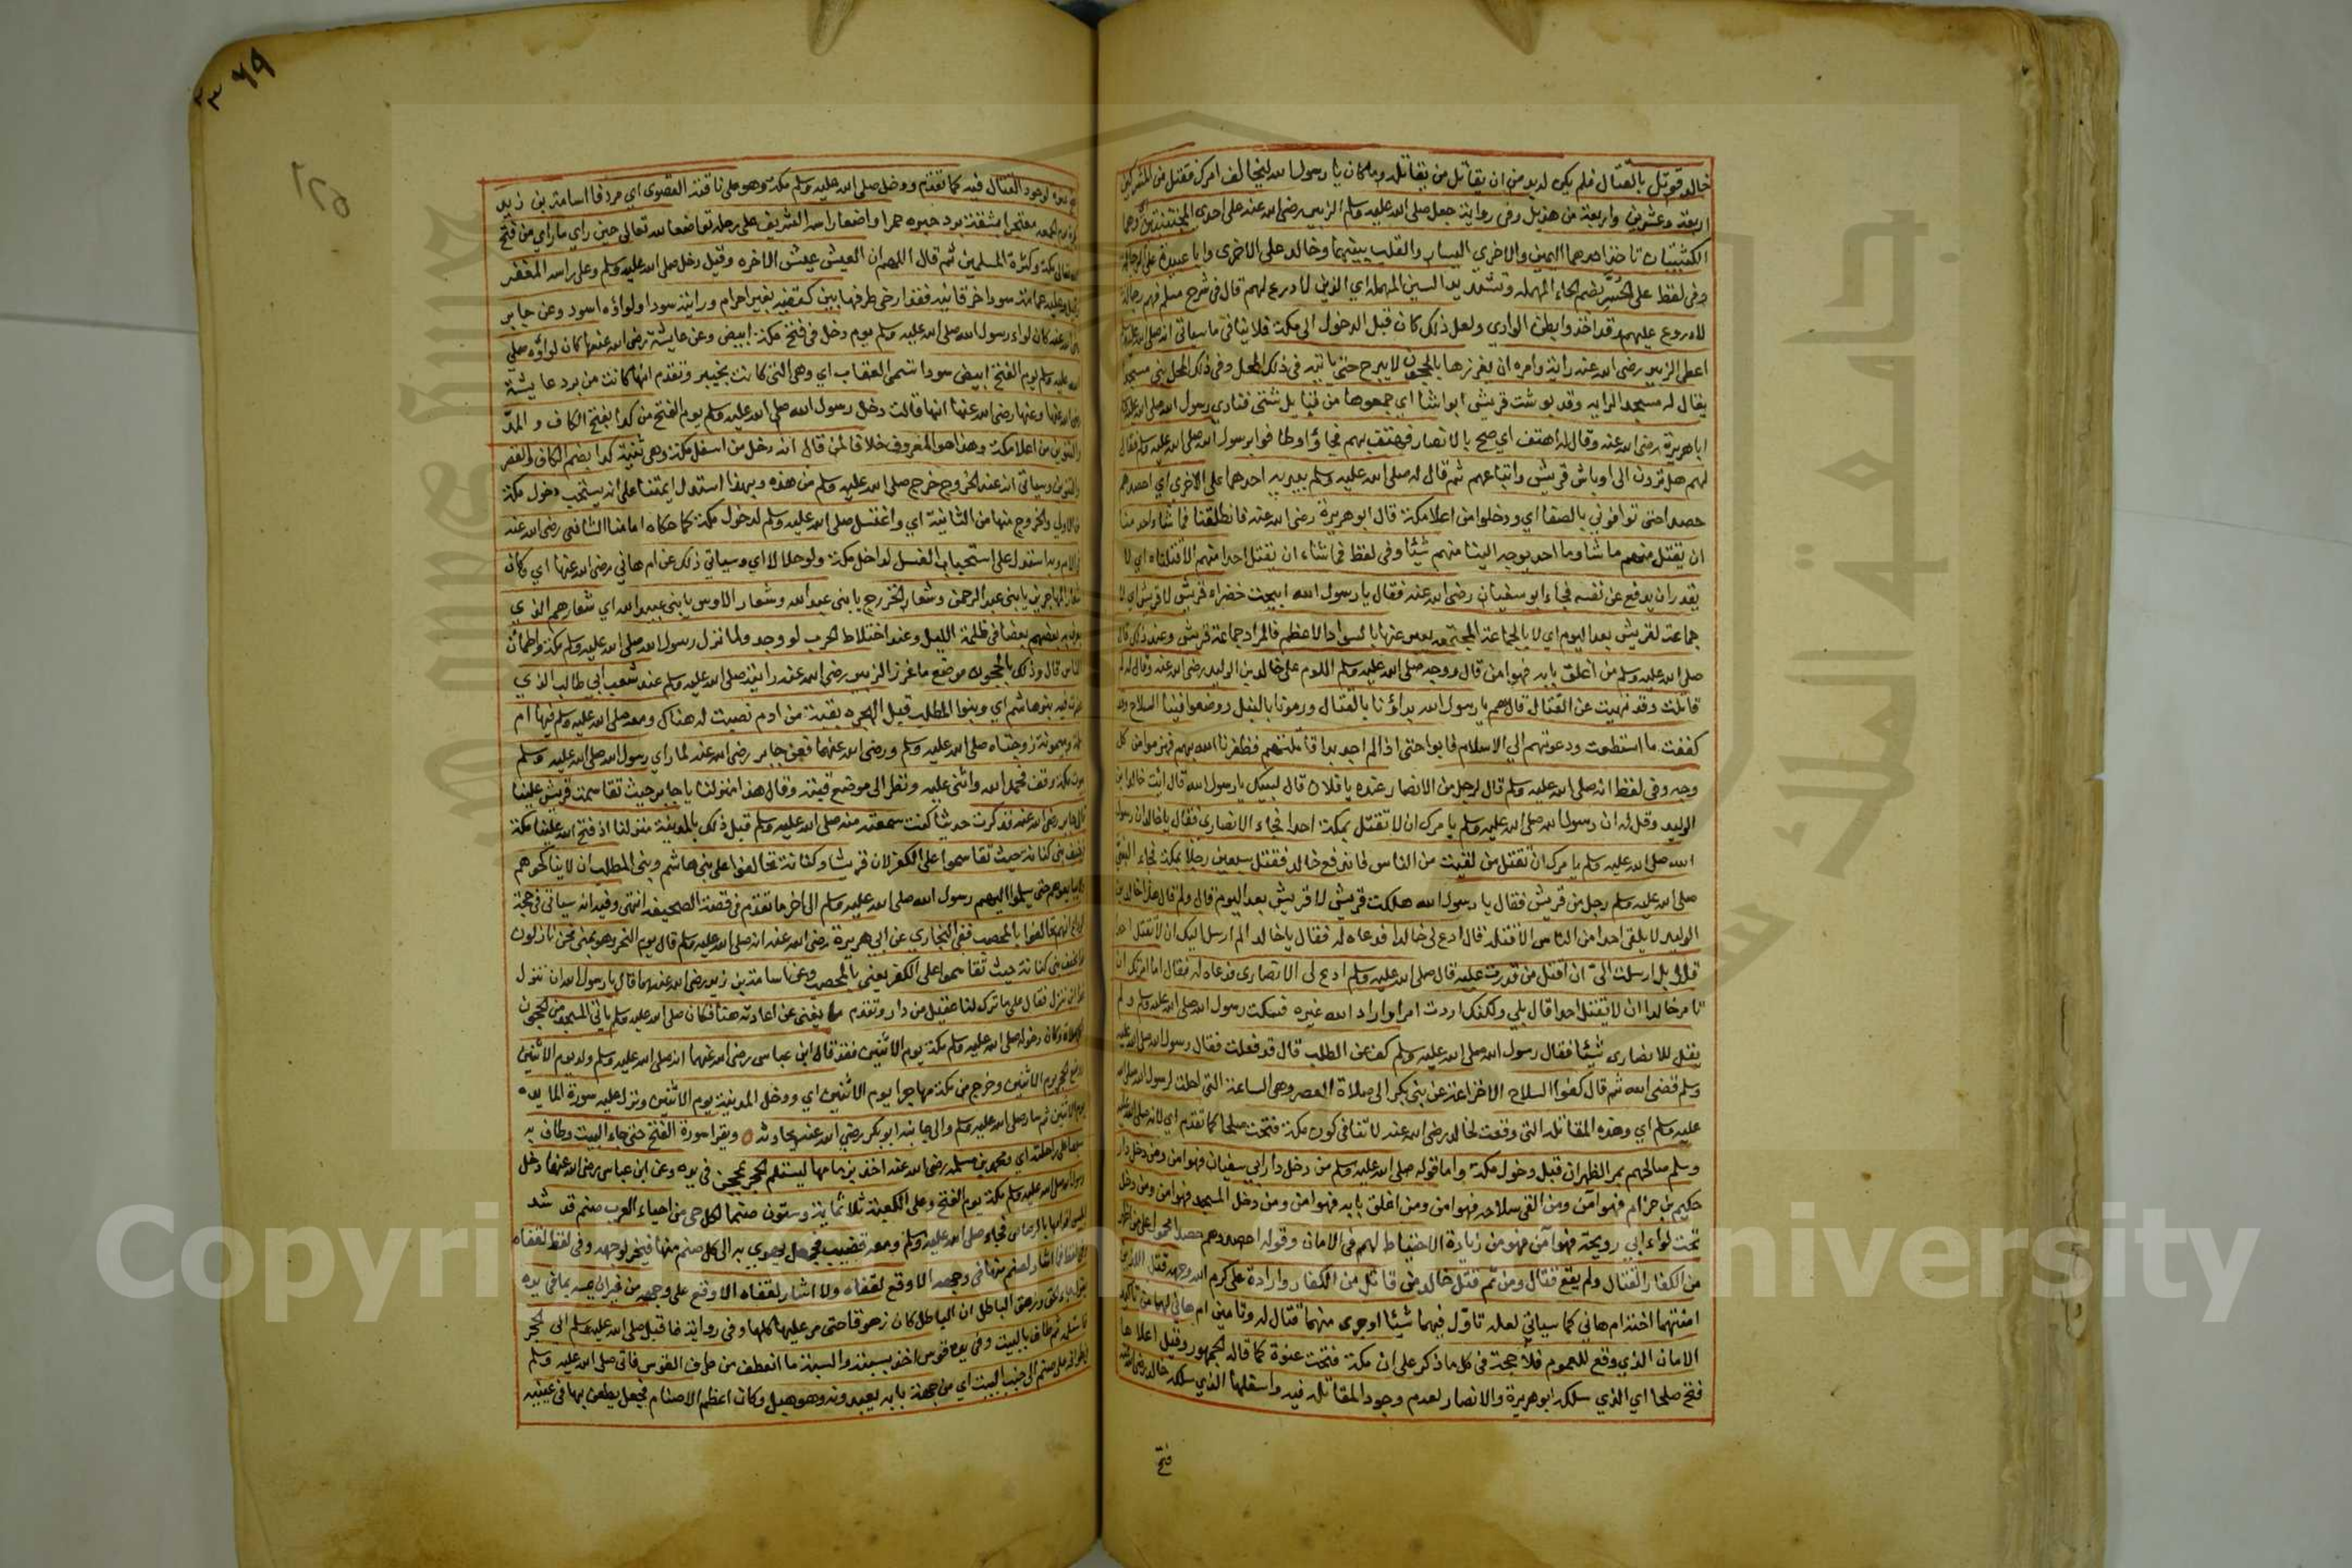 خالد قوتل بالقتال فلم يكن له بد من ان يقاتل من يقاتله وما كان يا رسول الله ليخالف امرك فقتل من المشركين
اربعة وعشرين واربعة من هذيل وفى رواية جعل صلى الله عليه وسلم الزبير رضى الله عنه على احدى المجنبتين وهما
الكتيبتان تاخذ احدهما اليمين والاخرى اليسار والقلب بينهما وخالد على الاخرى وابا عبيدة على الرجالة
وفى لفظ على الحسر بضم الحاء المهملة وتشديد السين المهملة اي الذين لا درع لهم قال فى شرح مسلم فهم رجالة
لا دروع عليهم وقد اخذوا بطن الوادي ولعل ذلك كان قبل الدخول الى مكة فلا ينافى ما سياتى انه صلى الله عليه وسلم
اعطى الزبير رضى الله عنه راية وامره ان يغرزها بالحجون لا يبرح حتى ياتيه فى ذلك المحل وفى ذلك المحل بنى مسجد
يقال له مسجد الراية وقد بوشت قريش اوباشا اي جمعوها من قبايل شتى فنادى رسول الله صلى الله عليه وسلم
ابا هريرة رضى الله عنه وقال له اهتف اي صح بالانصار فهتف بهم فجاؤا وطافوا برسول الله صلى الله عليه وسلم فقال
لهم هل ترون الى اوباش قريش واتباعهم ثم قال له صلى الله عليه وسلم بيديه احدهما على الاخرى اي احصدوهم
حصدا حتى توافونى بالصفا اي ودخلوا من اعلا مكة قال ابو هريرة رضى الله عنه فانطلقنا فما شاء واحد منا
ان يقتل منهم ما شا وما احد يوجه الينا منهم شيئا وفى لفظ فما نشاء ان نقتل احدا منهم الا قتلناه اي لا
يقدر ان يدفع عن نفسه فجاء ابو سفيان رضى الله عنه فقال يا رسول الله ابيحت خضراء قريش لا قريش اي لا
جماعة لقريش بعد اليوم اي لا بالجماعة المجتمعة يعبر عنها بالسواد الاعظم فالمراد جماعة قريش وعند ذلك قال
صلى الله عليه وسلم من اغلق بابه فهو امن قال ووجه صلى الله عليه وسلم اللوم على خالد بن الوليد رضى الله عنه وقال له لم
قاتلت وقد نهيت عن القتال قال هم يا رسول الله بداؤنا بالقتال ورمونا بالنبل ووضعوا فينا السلاح وقد
كففت ما استطعت ودعوتهم الى الاسلام فابوا حتى اذا لم اجد بدا قاتلتهم فظفرنا الله بهم فهزموا من كل
وجه وفى لفظ انه صلى الله عليه وسلم قال لرجل من الانصار عنده يا فلان قال لبيك يا رسول الله قال ائت خالد بن
الوليد وقل له ان رسول الله صلى الله عليه وسلم يامرك ان لا تقتل بمكة احدا فجاء الانصارى فقال يا خالد ان رسول
الله صلى الله عليه وسلم يامرك ان تقتل من لقيت من الناس فاندفع خالد فقتل سبعين رجلا بمكة فجاء النبى
صلى الله عليه وسلم رجل من قريش فقال يا رسول الله هلكت قريش لا قريش بعد اليوم قال ولم قال هذا خالد بن
الوليد لا يلقى احدا من الناس الا قتله قال ادع لى خالدا فدعاه له فقال يا خالد الم ارسل اليك ان لا تقتل احدا
قال بل ارسلت الىّ ان اقتل من قدرت عليه قال صلى الله عليه وسلم ادع لى الانصارى فدعاه له فقال اما امرتك ان
تامر خالدا ان لا يقتل احدا قال بلى ولكنك اردت امرا واراد الله غيره فسكت رسول الله صلى الله عليه وسلم ولم
يقل للانصارى شيئا فقال رسول الله صلى الله عليه وسلم كف عن الطلب قال قد فعلت فقال رسول الله صلى الله عليه
وسلم قضى الله ثم قال كفوا السلاح الا خزاعة عن بنى بكر الى صلاة العصر وهى الساعة التى احلت لرسول الله صلى الله
عليه وسلم اي وهذه المقاتلة التى وقعت لخالد رضى الله عنه لا تنافى كون مكة فتحت صلحا كما تقدم اي لانه صلى الله عليه
وسلم صالحهم بمر الظهران قبل دخول مكة واما قوله صلى الله عليه وسلم من دخل دار ابي سفيان فهو امن ومن دخل دار
حكيم بن حزام فهو آمن ومن القى سلاحه فهو امن ومن اغلق بابه فهو امن ومن دخل المسجد فهو امن ومن دخل
تحت لواء ابي رويحة فهو آمن فهو من زيادة الاحتياط لهم فى الامان وقوله احصدوهم حصدا محمول على من اظهر
من الكفار القتال ولم يقع قتال ومن ثم قتل خالد من قاتل من الكفار وارادة على كرم الله وجهه قتل اللذين
امنتهما اخته ام هانى كما سياتى لعله تاوّل فيهما شيئا او جرى منهما قتال له وتامين ام هانى لهما من تاكيد
الامان الذي وقع للعموم فلا حجة فى كل ما ذكر على ان مكة فتحت عنوة كما قاله الجمهور وقيل اعلاها
فتح صلحا اي الذي سلكه ابو هريرة والانصار لعدم وجود المقاتلة فيه واسفلها الذي سلكه خالد رضى الله عنه
فتح
٣٦٩
فتح عنوة لوجود القتال فيه كما تقدم ودخل صلى الله عليه وسلم مكة وهو على ناقته القصوى اي مردفا اسامة بن زيد
معتجرا بشقة برد حبرة حمرا واضعا راسه الشريف على رحله تواضعا لله تعالى حين راي ما راي من فتح
الله تعالى مكة وكثرة المسلمين ثم قال اللهم ان العيش عيش الاخره وقيل دخل صلى الله عليه وسلم وعلى راسه المغفر
وقيل وعليه عمامة سودا حرقانية فقد ارخى طرفها بين كتفيه بغير احرام ورايته سودا ولواؤه اسود وعن جابر
رضى الله عنه كان لواء رسول الله صلى الله عليه وسلم يوم دخل فى فتح مكة ابيض وعن عايشة رضى الله عنها كان لواؤه صلى
الله عليه وسلم يوم الفتح ابيض سودا تسمى العقاب اي وهى التى كانت بخيبر وتقدم انها كانت من برد عايشة
رضى الله عنها وعنها رضى الله عنها انها قالت دخل رسول الله صلى الله عليه وسلم يوم الفتح من كدا بفتح الكاف و المدّ
والتنوين من اعلا مكة وهذا هو المعروف خلافا لمن قال انه دخل من اسفل مكة وهى ثنية كدا بضم الكاف والقصر
والتنوين وسياتى انه عند الخروج خرج صلى الله عليه وسلم من هذه وبهذا استدل ايمتنا على انه يستحب دخول مكة
من الاولى والخروج منها من الثانية اي واغتسل صلى الله عليه وسلم لدخول مكة كما حكاه امامنا الشافعى رضى الله عنه
فى الام وبه استدل على استحباب الغسل لداخل مكة ولو حلالا اي وسياتى ذلك عن ام هانى رضى الله عنها اي وكان
شعار المهاجرين يا بنى عبد الرحمن وشعار الخزرج يا بنى عبد الله وشعار الاوس يا بنى عبيد الله اي شعارهم الذي
يعرف به بعضهم بعضا فى ظلمة الليل وعند اختلاط الحرب لو وجد ولما نزل رسول الله صلى الله عليه وسلم مكة واطمأن
الناس قال وذلك بالحجون موضع ما غرز الزبير رضى الله عنه رايته صلى الله عليه وسلم عند شعب ابي طالب الذي
حصرت فيه بنو هاشم اي وبنوا المطلب قبل الهجرة بقبة من ادم نصبت له هناك ومعه صلى الله عليه وسلم فيها ام
سلمة وميمونة زوجتاه صلى الله عليه وسلم ورضى الله عنهما فعن جابر رضى الله عنه لما راي رسول الله صلى الله عليه وسلم
بيوت مكة وقف فحمد الله واثنى عليه ونظر الى موضع قبته وقال هذا منزلنا يا جابر حيث تقاسمت قريش علينا
قال جابر رضى الله عنه فذكرت حديثا كنت سمعته منه صلى الله عليه وسلم قبل ذلك بالمدينة منزلنا اذ فتح الله علينا مكة
بخيف بنى كنانة حيث تقاسموا على الكفر لان قريشا وكنانة تحالفوا على بنى هاشم وبنى المطلب ان لا يناكحوهم
ولا يبايعوهم حتى يسلموا اليهم رسول الله صلى الله عليه وسلم الى اخر ما تقدم فى قصة الصحيفة انتهى وفيه انه سياتى فى حجة
الوداع انهم تحالفوا بالمحصب ففى البخارى عن ابى هريرة رضى الله عنه انه صلى الله عليه وسلم قال يوم النحر وهو بمنى نحن نازلون
غدا بخيف بنى كنانة حيث تقاسموا على الكفر يعنى بالمحصب وعن اسامة بن زيد رضى الله عنهما قال يا رسول الله ان تنزل
غدا اين تنزل فقال على ما ترك لنا عقيل من دار وتقدم ما يغنى عن اعادته هنا فكان صلى الله عليه وسلم ياتى المسجد من الحجون
لكل صلاة وكان دخوله صلى الله عليه وسلم مكة يوم الاثنين فقد قال ابن عباس رضى الله عنهما انه صلى الله عليه وسلم ولد يوم الاثنين
ووضع الحجر يوم الاثنين وخرج من مكة مهاجرا يوم الاثنين اي ودخل المدينة يوم الاثنين ونزل عليه سورة المايده
يوم الاثنين ثم سار صلى الله عليه وسلم والى جانبه ابو بكر رضى الله عنه يحادثه ويقرا سورة الفتح حتى جاء البيت وطاف به
سبعا على راحلته اي ومحمد بن مسلمة رضى الله عنه اخذ بزمامها ليستلم الحجر بمحجن فى يده وعن ابن عباس رضى الله عنهما دخل
رسول الله صلى الله عليه وسلم مكة يوم الفتح وعلى الكعبة ثلاثماية وستون صنما لكل حى من احياء العرب صنم قد شد
ابليس اقدامها بالرصاص فجاء صلى الله عليه وسلم ومعه قضيب فجعل يهوى به الى كل صنم منها فيخر لوجهه وفى لفظ لقفاه
وفى لفظ فما اشار لصنم منها فى وجهه الا وقع لقفاه ولا اشار لقفاه الا وقع على وجهه من غير ان يمسه بما فى يده
يقول جاء الحق وزهق الباطل ان الباطل كان زهوقا حتى مر عليها كلها وفى رواية فاقبل صلى الله عليه وسلم الى الحجر
فاستلمه ثم طاف بالبيت وفى يده قوس اخذ بسيته والسية ما انعطف من طرف القوس فاتى صلى الله عليه وسلم
فى طوافه على صنم الى جنب البيت اي من جهة بابه يعبدونه وهو هبل وكان اعظم الاصنام فجعل يطعن بها فى عينيه
Copyright © King Saud University
جامعة الملك سعود